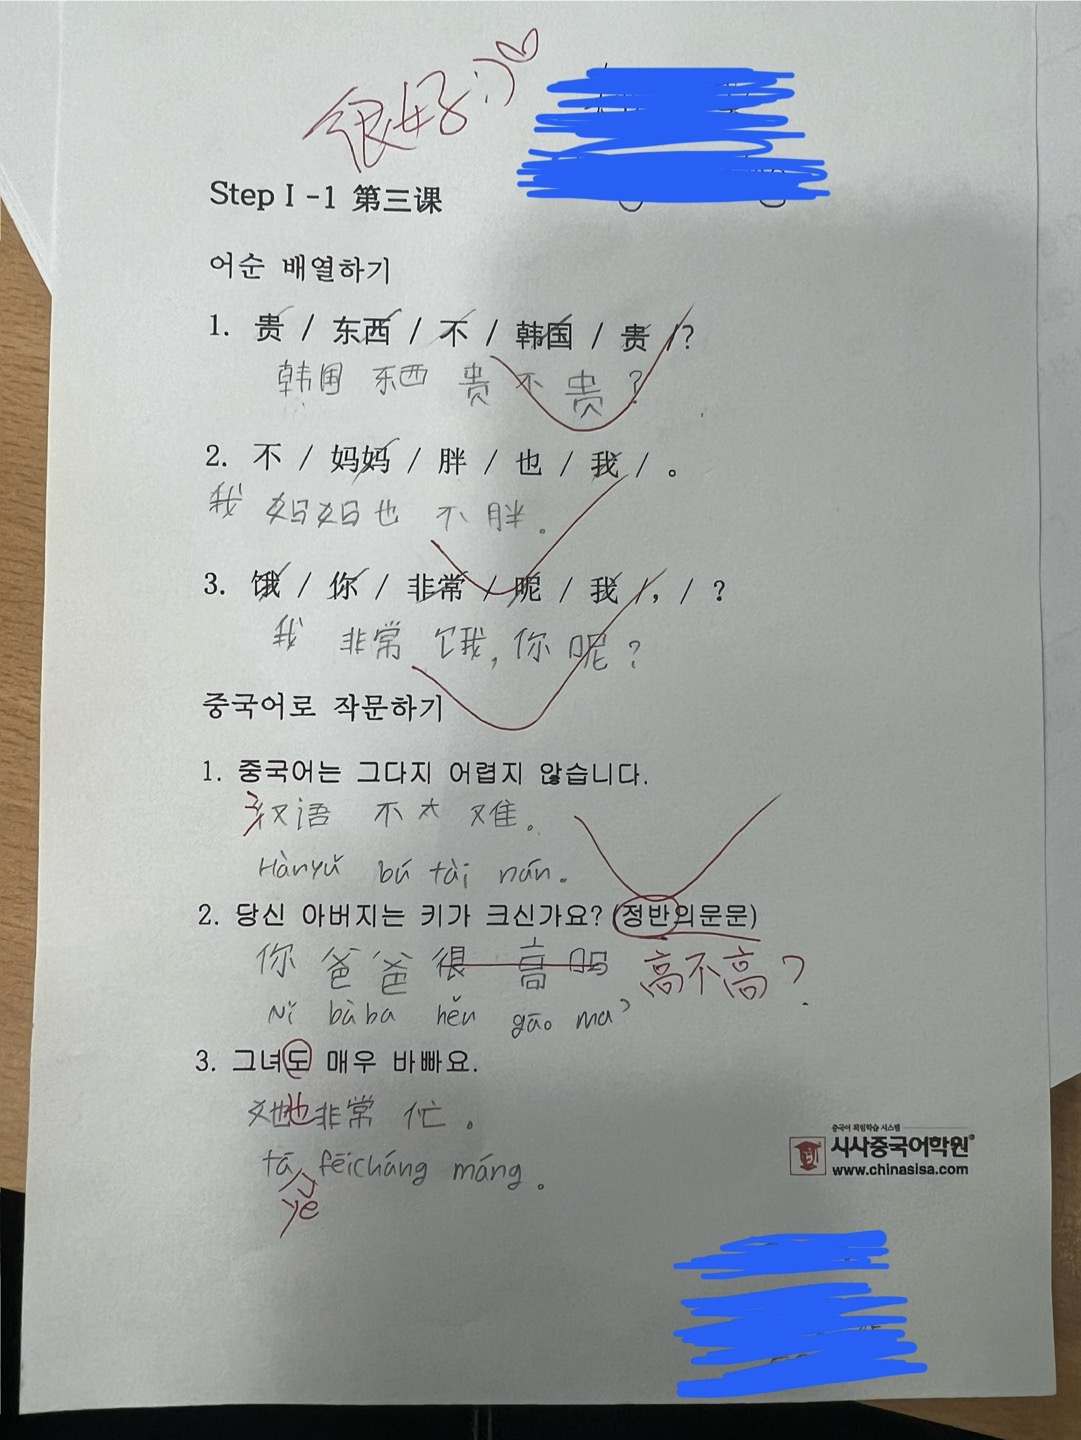 很好 :) ♡
Step Ⅰ -1 第三课
어순 배열하기
1. 贵 / 东西 / 不 / 韩国 / 贵 / ?
韩国 东西 贵 不 贵 ?
2. 不 / 妈妈 / 胖 / 也 / 我 / 。
我 妈妈 也 不 胖 。
3. 饿 / 你 / 非常 / 呢 / 我 / , / ?
我 非常 饿, 你 呢 ?
중국어로 작문하기
1. 중국어는 그다지 어렵지 않습니다.
汉语 不 太 难 。
Hànyǔ bú tài nán.
2. 당신 아버지는 키가 크신가요? (정반의문문)
你 爸爸 很 高 吗 高不高?
Nǐ bàba hěn gāo ma?
3. 그녀도 매우 바빠요.
她也非常 忙 。
tā fēicháng máng.
yě
중국어 체험학습 시스템
시사중국어학원®
www.chinasisa.com